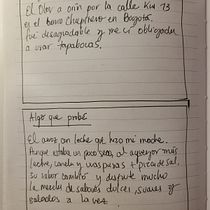 El Olor a orín por la calle Kra 13
es el barrio Chapinero en Bogotá.
fue desagradable y me vi obligada
a usar tapabocas.
Algo que probé
El arroz con leche que hizo mi
Aunque estaba un poco seco, al agregar más
leche, canela y uvas pasas + pizca de sal,
su sabor cambió y disfruté mucho
la mezcla de sabores dulces, suaves y
salados a la vez.